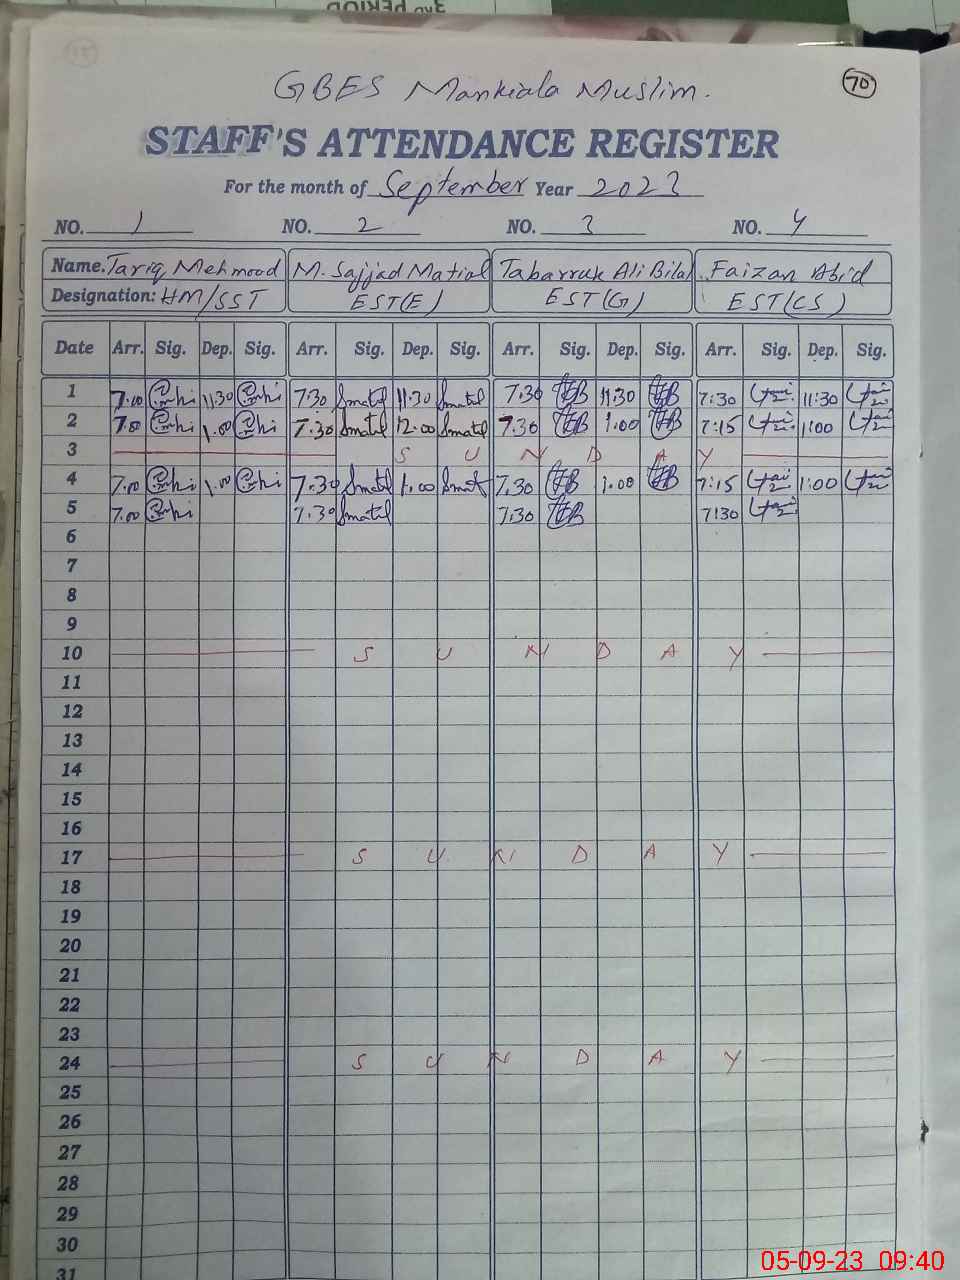 3RD PERIOD
15
70
GBES Mankiala Muslim.
STAFF'S ATTENDANCE REGISTER
For the month of September Year 2023
NO. 1 NO. 2 NO. 3 NO. 4
Name. Tariq Mehmood M. Sajjad Matial Tabarruk Ali Bilal Faizan Abid
Designation: HM/SST EST(E) EST(G) EST(CS)
Date Arr. Sig. Dep. Sig. Arr. Sig. Dep. Sig. Arr. Sig. Dep. Sig. Arr. Sig. Dep. Sig.
1 7.00 11.30 7.30 Smatil 11.30 Smatil 7.30 11:30 7:30 11:30
2 7.00 1.00 7.30 Smatil 12.00 Smatil 7.30 1:00 7:15 1:00
3 S U N D A Y
4 7.00 1.00 7.30 Smatil 1.00 Smat 7.30 1.00 7:15 1:00
5 7.00 7.30 Smatil 7.30 7:30
6
7
8
9
10 S U N D A Y
11
12
13
14
15
16
17 S U N D A Y
18
19
20
21
22
23
24 S U N D A Y
25
26
27
28
29
30
31
05-09-23 09:40